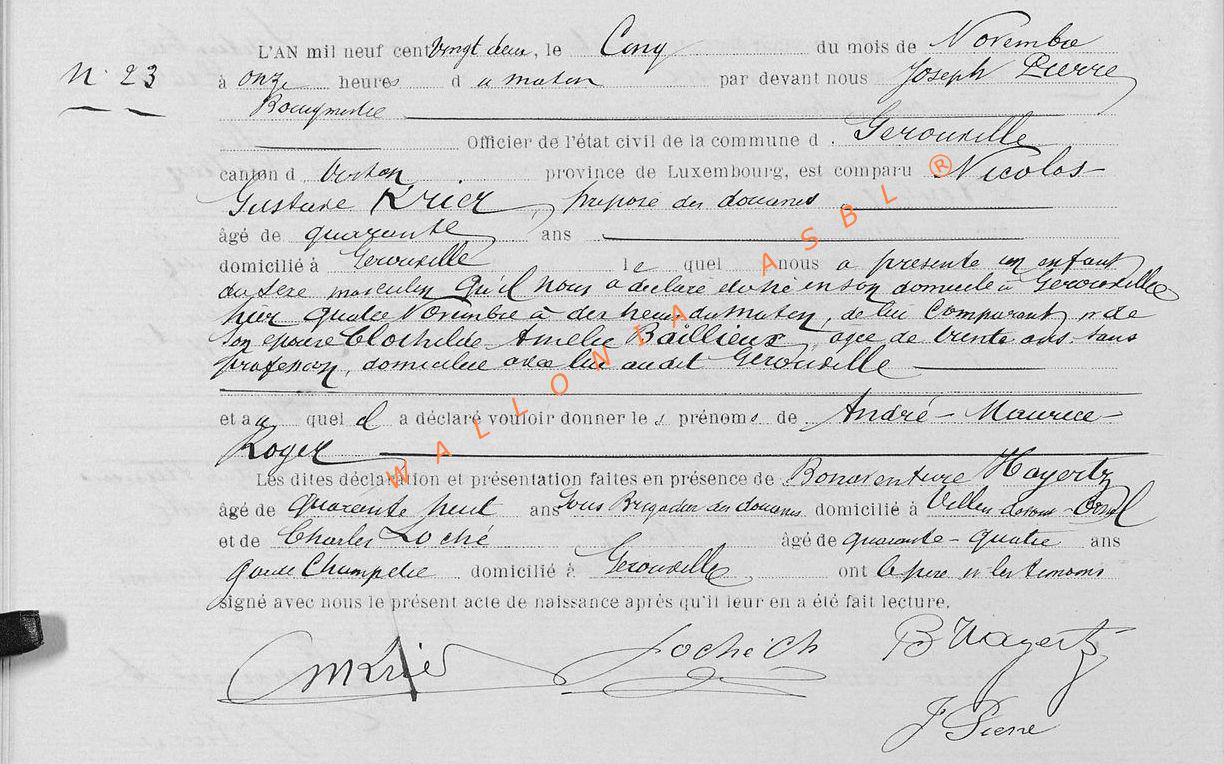 N° 23
L'AN mil neuf cent Vingt deux, le Cinq du mois de Novembre
à onze heures d u matin par devant nous Joseph Pierre
Bourgmestre
Officier de l'état civil de la commune d e Gerouville
canton d e Virton province de Luxembourg, est comparu Nicolas
Gustave Krier, préposé des douanes
âgé de quarante ans
domicilié à Gerouville le quel nous a présenté un enfant
du sexe masculin qu'il nous a déclaré être né en son domicile à Gerouville
hier quatre Novembre à dix heures du matin, de lui Comparant et de
son épouse Clothilde Amélie Baillieux, agée de trente ans sans
profession, domiciliée avec lui audit Gerouville
et au quel il a déclaré vouloir donner les prénoms de André - Maurice -
Roger
Les dites déclaration et présentation faites en présence de Bonaventure Hayertz
âgé de quarante huit ans Sous Brigadier des douanes domicilié à Villers devant Orval
et de Charles Loché âgé de quarante - quatre ans
garde Champêtre domicilié à Gerouville ont le père et les témoins
signé avec nous le présent acte de naissance après qu'il leur en a été fait lecture.
Krier Loché Ch B Hayertz
J Pierre
WALLONIA ASBL ®